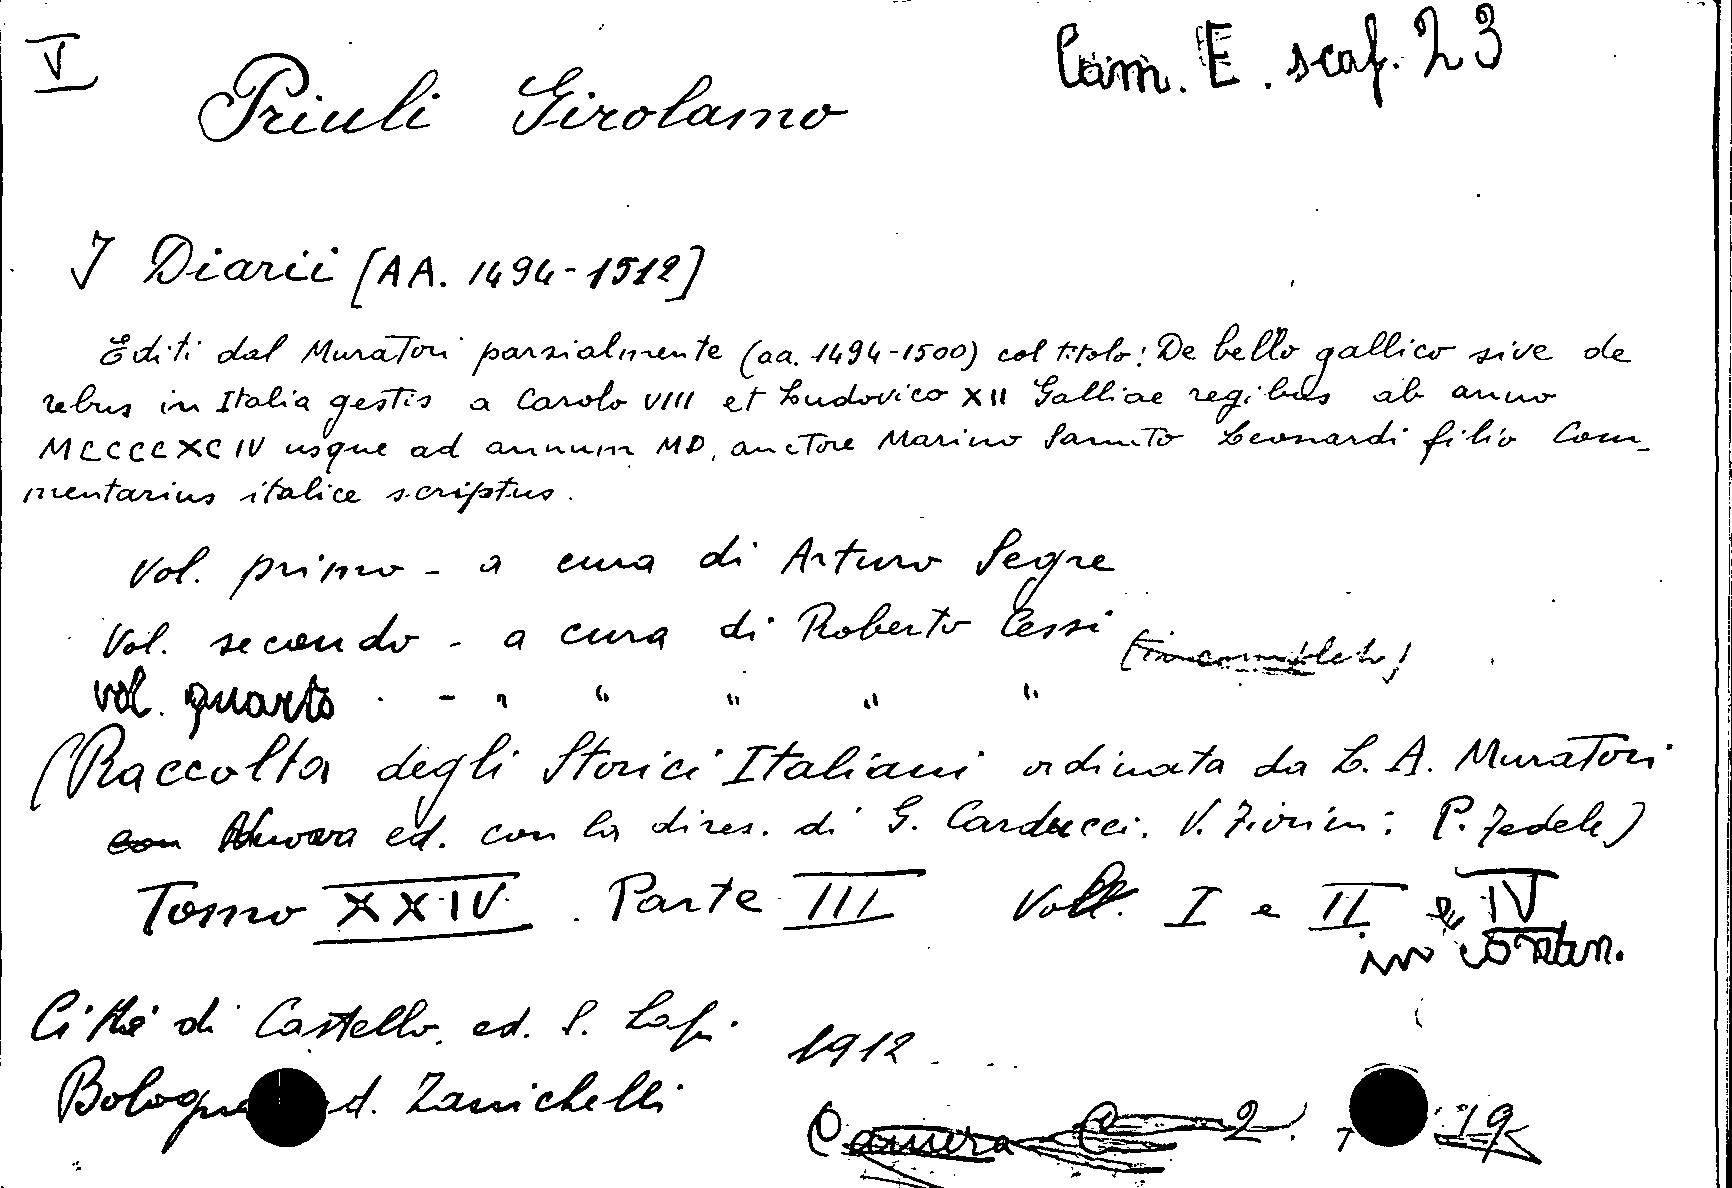 V
Cam. E. scaf. 23
Priuli Girolamo
I Diarii [AA. 1494-1512]
Editi dal Muratori parzialmente (aa. 1494-1500) col titolo: De bello gallico sive de
rebus in Italia gestis a Carolo VIII et Ludovico XII Galliae regibus ab anno
MCCCCXCIV usque ad annum MD, auctore Marino Sanuto Leonardi filio Com-
mentarius italice scriptus.
Vol. primo - a cura di Arturo Segre
Vol. secondo - a cura di Roberto Cessi (incompleto)
vol. quarto - " " " " "
(Raccolta degli Storici Italiani ordinata da L. A. Muratori
con Nuova ed. con la direz. di G. Carducci. V. Fiorini: P. Fedele)
Tomo XXIV. Parte III Voll. I e II e IV
in contin.
Città di Castello, ed. S. Lapi 1912
Bologna ed. Zanichelli
Camera C 2. 19